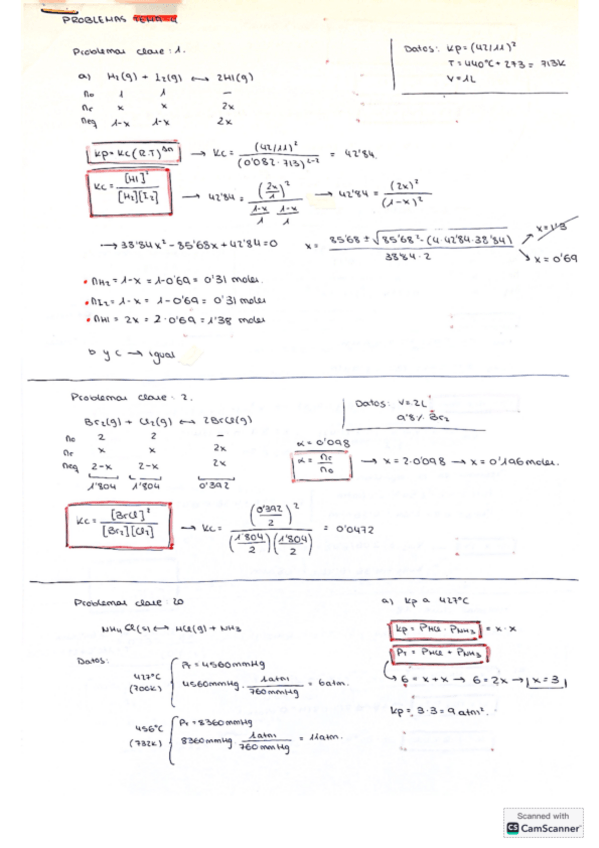 PROBLEMAS TEMA 9
Problemas clase: 1.
Datos: Kp=(42/11)²
T=440ºC+273=713K
V=1L
a) H₂(g) + I₂(g) ⟷ 2HI(g)
n₀ 1 1 –
nr x x 2x
neq 1-x 1-x 2x
Kp=Kc(R·T)^Δn → Kc= (42/11)² / (0'082·713)^(2-2) = 42'84.
Kc= [HI]² / [H₂][I₂] → 42'84 = (2x/1)² / (1-x/1 · 1-x/1) → 42'84 = (2x)² / (1-x)²
→ 38'84x² - 85'68x + 42'84=0 x= (85'68 ± √(85'68² - (4·42'84·38'84))) / (38'84·2)
x=1'3
x=0'69
• nH₂ = 1-x = 1-0'69 = 0'31 moles.
• nI₂ = 1-x = 1-0'69 = 0'31 moles
• nHI = 2x = 2·0'69 = 1'38 moles
b y c → igual
Problemas clase: 2.
Datos: V=2L
9'8% Br₂
Br₂(g) + Cl₂(g) ⟷ 2BrCl(g)
n₀ 2 2 –
nr x x 2x
neq 2-x 2-x 2x
1'804 1'804 0'392
α=0'098
α = nr/n₀ → x=2·0'098 → x=0'196 moles.
Kc= [BrCl]² / [Br₂][Cl₂] → Kc= (0'392/2)² / (1'804/2)(1'804/2) = 0'0472
Problemas clase: 20
NH₄Cl(s) ⟷ HCl(g) + NH₃
Datos:
427ºC
(700K)
PT = 4560mmHg
4560mmHg · 1atm/760mmHg = 6atm.
456ºC
(732K)
PT = 8360mmHg
8360mmHg · 1atm/760mmHg = 11atm.
a) Kp a 427ºC
Kp = PHCl · PNH₃ = x·x
PT = PHCl + PNH₃
6 = x+x → 6=2x → x=3
Kp= 3·3 = 9 atm².
Scanned with
CS CamScanner